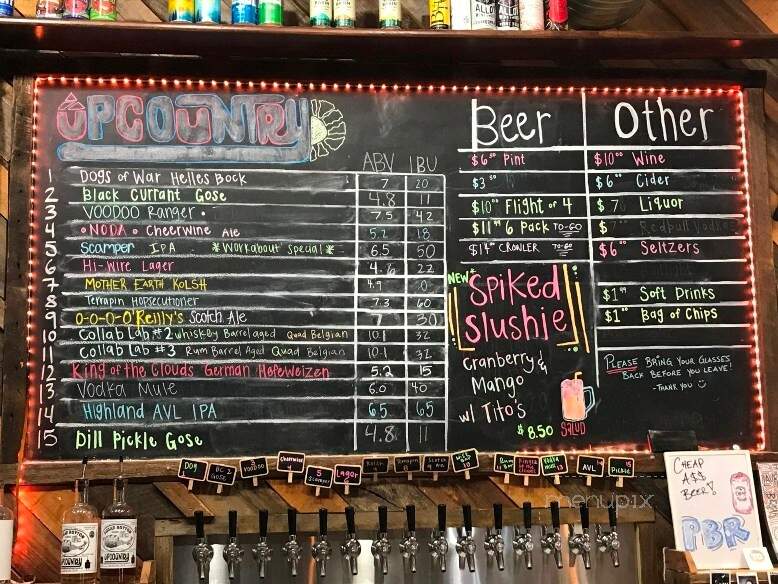 UPCOUNTRY
ABV IBU
1 Dogs of War Helles Bock 7 20
2 Black Currant Gose 4.8 11
3 VOODOO Ranger 7.5 42
4 NODA Cheerwine Ale 5.2 18
5 Scamper IPA *Workabout Special* 6.5 50
6 Hi-Wire Lager 4.6 22
7 MOTHER EARTH KOLSH 4.9 0
8 Terrapin Hopsecutioner 7.3 60
9 O-O-O-O'Reilly's Scotch Ale 7 30
10 Collab Lab #2 whiskey Barrel aged Quad Belgian 10.1 32
11 Collab Lab #3 Rum Barrel Aged Quad Belgian 10.1 32
12 King of the Clouds German Hefeweizen 5.2 15
13 Vodka Mule 6.0 40
14 Highland AVL IPA 6.5 65
15 Dill Pickle Gose 4.8 11
Beer
$6.50 Pint
$3.50
$10.00 Flight of 4
$11.99 6 Pack TO-GO
$14.00 CROWLER TO-GO
NEW
Spiked
Slushie
Cranberry &
Mango
w/ Tito's
$8.50 SALUD
Other
$10.00 Wine
$6.00 Cider
$7 Liquor
$7 Redbull Vodka
$6.00 Seltzers
$1.99 Soft Drinks
$1.00 Bag of Chips
PLEASE BRING YOUR GLASSES
BACK BEFORE YOU LEAVE!
-THANK YOU
DOG
BC 2 GOSE
3 VOODOO
Cheerwine 4
5 Scamper
Lager 6
Terrapin
Scotch
AVL
15 Pickle
CHEAP
A$$
BEER!
PBR
UPCOUNTRY
menupix